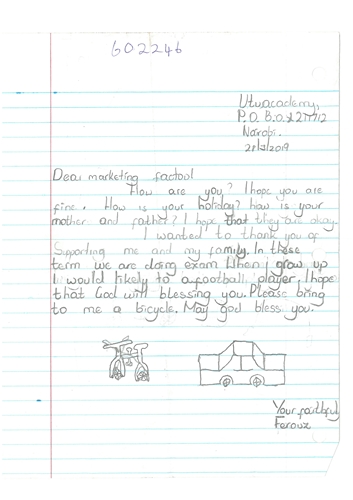 602246
Utuacademy,
P.O. B.O.X 27712
Nairobi.
2019
Dear marketing factool
How are you? I hope you are
fine. How is your holiday? how is your
mother and father? I hope that they are okay.
I wanted to thank you of
Supporting me and my family. In these
term we are doing exam When I grow up
I would likely to a football player, I hope
that God will blessing you. Please bring
to me a bicycle. May god bless you.
Your faithful
Feroux